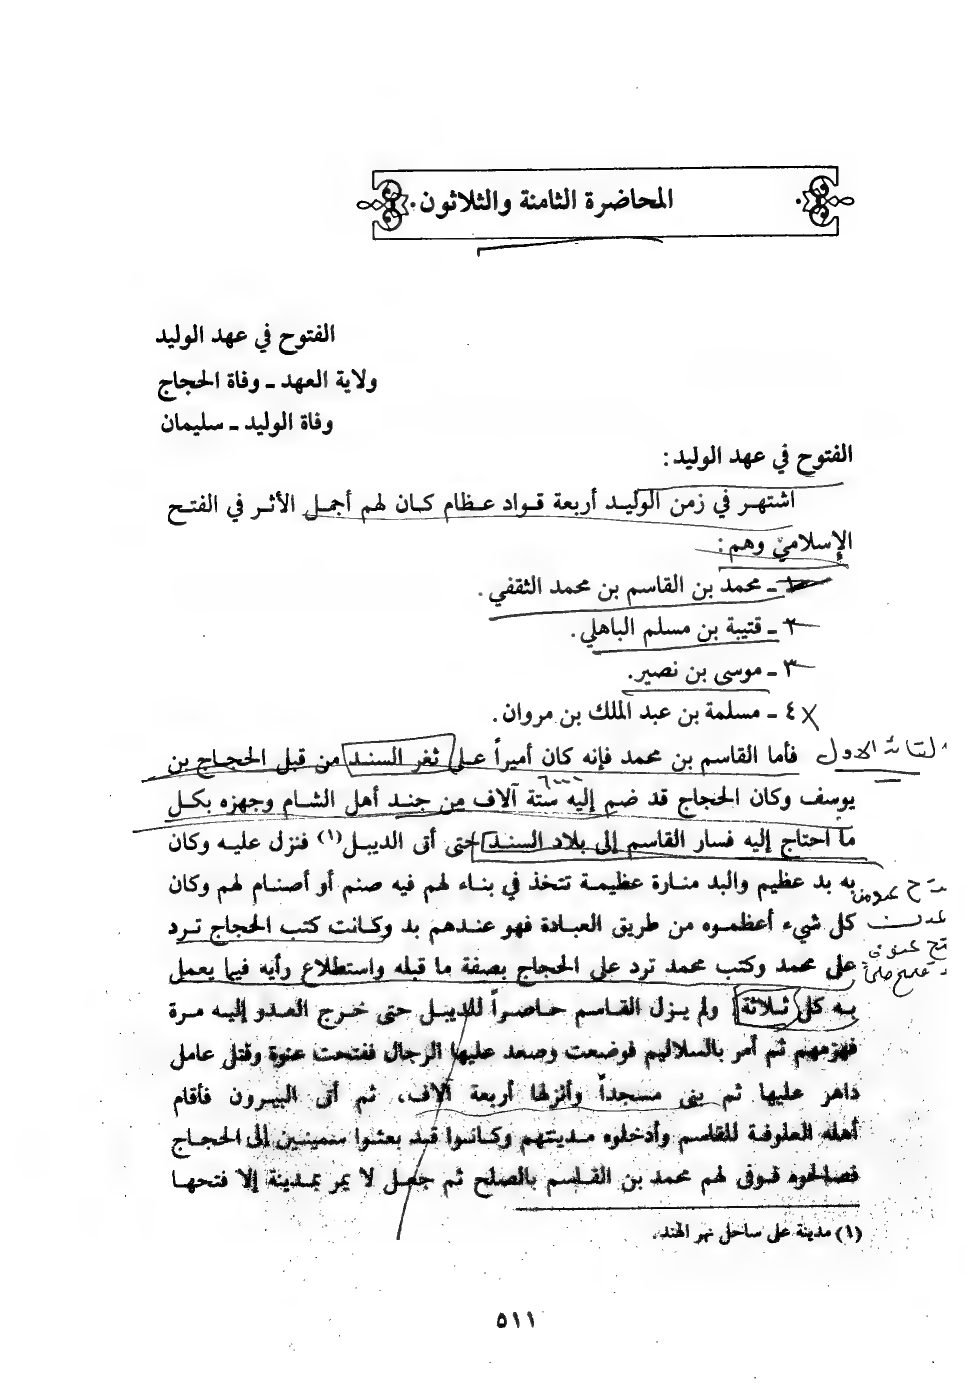 المحاضرة الثامنة والثلاثون
الفتوح في عهد الوليد
ولاية العهد ـ وفاة الحجاج
وفاة الوليد ـ سليمان
الفتوح في عهد الوليد:
اشتهر في زمن الوليد أربعة قواد عظام كان لهم أجمل الأثر في الفتح
الإسلامي وهم:
١ ـ محمد بن القاسم بن محمد الثقفي.
٢ ـ قتيبة بن مسلم الباهلي.
٣ ـ موسى بن نصير.
٤ ـ مسلمة بن عبد الملك بن مروان.
فأما القاسم بن محمد فإنه كان أميراً على ثغر السند من قبل الحجاج بن
٦٠٠٠
يوسف وكان الحجاج قد ضم إليه ستة آلاف من جند أهل الشام وجهزه بكل
ما احتاج إليه فسار القاسم إلى بلاد السند حتى أتى الديبل(١) فنزل عليه وكان
به بد عظيم والبد منارة عظيمة تتخذ في بناء لهم فيه صنم أو أصنام لهم وكان
كل شيء أعظموه من طريق العبادة فهو عندهم بد وكانت كتب الحجاج ترد
على محمد وكتب محمد ترد على الحجاج بصفة ما قبله واستطلاع رأيه فيما يعمل
به كل ثلاثة ولم يزل القاسم حاصراً للديبل حتى خرج العدو إليه مرة
فهزمهم ثم أمر بالسلاليم فوضعت وصعد عليها الرجال ففتحت عنوة وقتل عامل
داهر عليها ثم بنى مسجداً وأنزلها أربعة آلاف، ثم أتى البيرون فأقام
أهله العلوفة للقاسم وأدخلوه مدينتهم وكانوا قد بعثوا سمينين إلى الحجاج
فصالحوه فوفى لهم محمد بن القاسم بالصلح ثم جعل لا يمر بمدينة إلا فتحها
(١) مدينة على ساحل نهر الهند.
٥١١